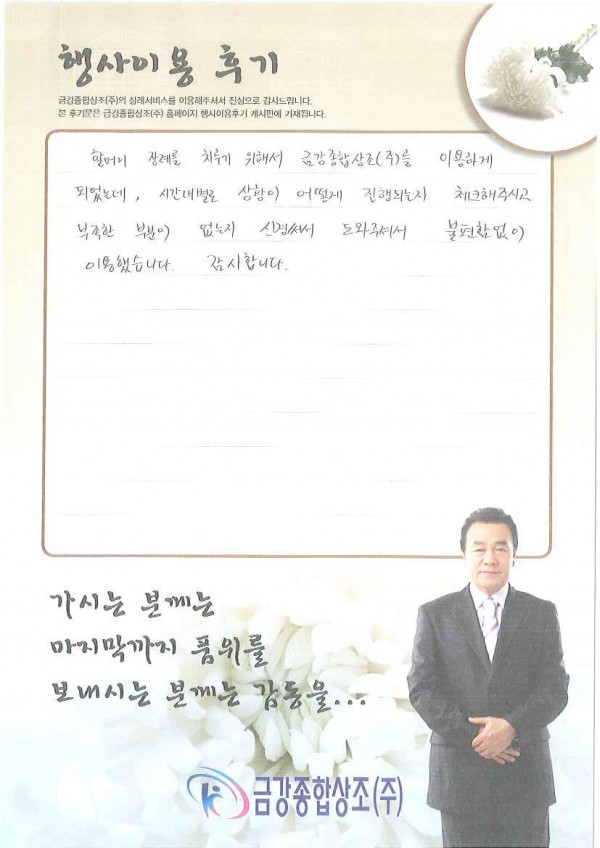 행사이용 후기
금강종합상조(주)의 장례서비스를 이용해주셔서 진심으로 감사드립니다.
본 후기문은 금강종합상조(주) 홈페이지 행사이용후기 게시판에 기재됩니다.
할머니 장례를 치루기 위해서 금강종합상조(주)를 이용하게
되었는데, 시간대별로 상황이 어떻게 진행되는지 체크해주시고
부족한 부분이 없는지 신경써서 도와주셔서 불편함없이
이용했습니다. 감사합니다.
가시는 분께는
마지막까지 품위를
보내시는 분께는 감동을...
금강종합상조(주)